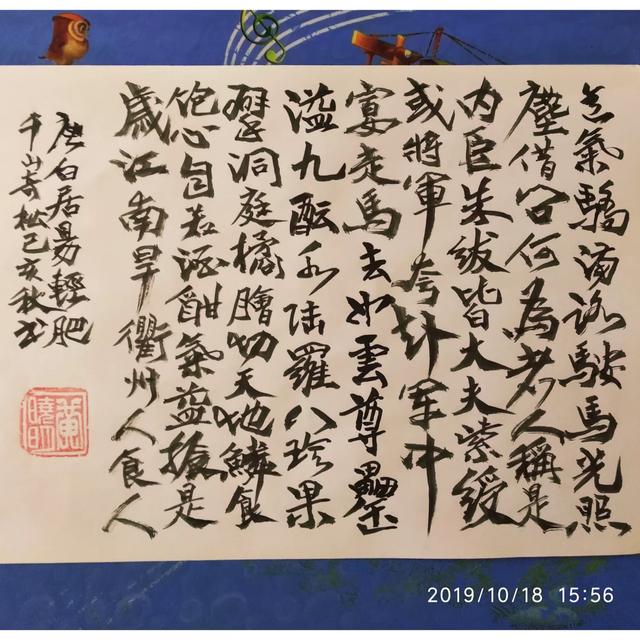 意氣驕滿路馬光照
塵借問何為者人稱是
内臣朱紱皆大夫紫綬
或將軍夸赴軍中
宴走馬去如雲尊罍
溢九醖水陸羅八珍果
擘洞庭橘膾切天池鱗食
飽心自若酒酣氣益振是
歲江南旱衢州人食人
唐白居易輕肥
千山奇松己亥秋书
黃曉明
2019/10/18 15:56